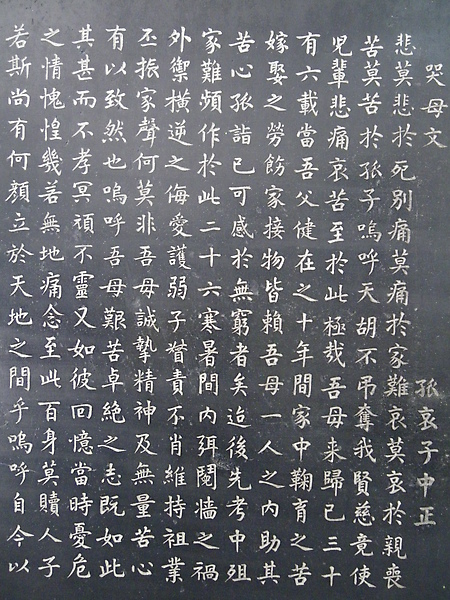 哭母文 孤哀子中正
悲莫悲於死別痛莫痛於家難哀莫哀於親喪
苦莫苦於孤子嗚呼天胡不弔奪我賢慈竟使
児輩悲痛哀苦至於此極哉吾母来歸已三十
有六載當吾父健在之十年間家中鞠育之苦
嫁娶之勞飭家接物皆賴吾母一人之内助其
苦心孤詣已可感於無窮者矣迨後先考中殂
家難頻作於此二十六寒暑間内弭鬩墻之禍
外禦橫逆之侮愛護弱子督責不肖維持祖業
丕振家聲何莫非吾母誠摯精神及無量苦心
有以致然也嗚呼吾母艱苦卓絶之志既如此
其甚而不孝冥頑不靈又如彼回憶當時憂危
之情愧惶幾若無地痛念至此百身莫贖人子
若斯尚有何顔立於天地之間乎嗚呼自今以